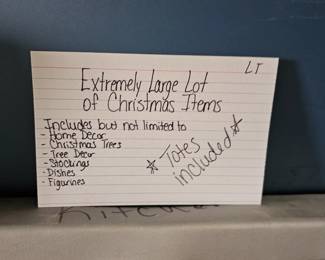 LT
Extremely Large Lot
of Christmas Items
Includes but not limited to
- Home Decor
- Christmas Trees
- Tree Decor
- Stockings
- Dishes
- Figurines
* Totes
included *
Kitchen